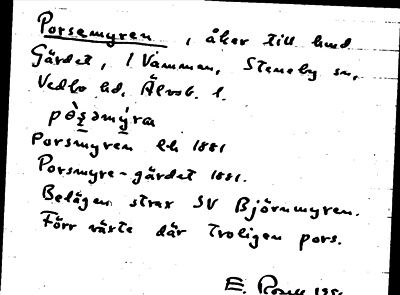 Porsemyren, åker till hmd
Gärdet, i Vamman, Steneby sn,
Vedbo hd, Älvsb. l.
Porsmyren lh 1881
Porsmyre-gärdet 1881.
Belägen strax SV Björnmyren.
Förr växte där troligen pors.
E.